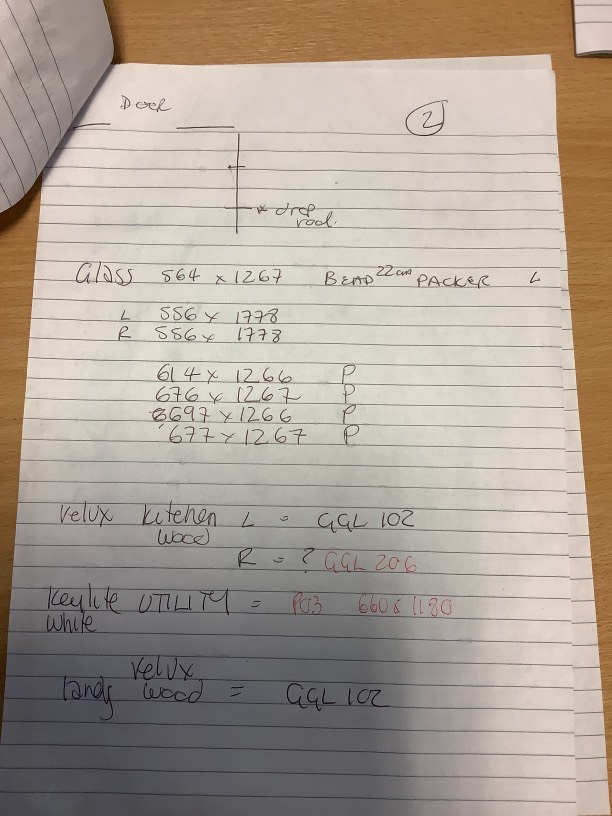 Door
2
* drop
rod.
Glass 564 x 1267 BEAD 22cm PACKER L
L 556 x 1778
R 556 x 1778
614 x 1266 P
676 x 1267 P
697 x 1266 P
677 x 1267 P
Velux kitchen L = GGL 102
wood
R = ? GGL 206
Keylite UTILITY = P03 660 x 1180
white
Velux
landg wood = GGL 102